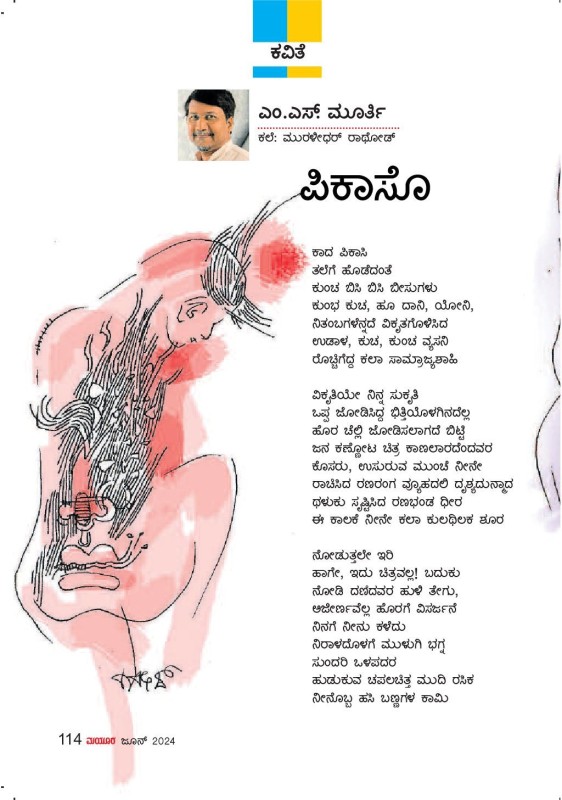 ಕವಿತೆ
ಎಂ.ಎಸ್. ಮೂರ್ತಿ
ಕಲೆ: ಮುರಳೀಧರ್ ರಾಥೋಡ್
ಪಿಕಾಸೊ
ಕಾದ ಪಿಕಾಸಿ
ತಲೆಗೆ ಹೊಡೆದಂತೆ
ಕುಂಚ ಬಿಸಿ ಬಿಸಿ ಬೀಸುಗಳು
ಕುಂಭ ಕುಚ, ಹೂ ದಾನಿ, ಯೋನಿ,
ನಿತಂಬಗಳೆನ್ನದೆ ವಿಕೃತಗೊಳಿಸಿದ
ಉಡಾಳ, ಕುಚ, ಕುಂಚ ವ್ಯಸನಿ
ರೊಚ್ಚಿಗೆದ್ದ ಕಲಾ ಸಾಮ್ರಾಜ್ಯಶಾಹಿ
ವಿಕೃತಿಯೇ ನಿನ್ನ ಸುಕೃತಿ
ಒಪ್ಪ ಜೋಡಿಸಿದ್ದ ಭಿತ್ತಿಯೊಳಗಿನದೆಲ್ಲ
ಹೊರ ಚೆಲ್ಲಿ ಜೋಡಿಸಲಾಗದೆ ಬಿಟ್ಟಿ
ಜನ ಕಣ್ಣೋಟ ಚಿತ್ರ ಕಾಣಲಾರದೆಂದವರ
ಕೊಸರು, ಉಸುರುವ ಮುಂಚೆ ನೀನೇ
ರಾಚಿಸಿದ ರಣರಂಗ ವ್ಯೂಹದಲಿ ದೃಶ್ಯದುನ್ಮಾದ
ಥಳುಕು ಸೃಷ್ಟಿಸಿದ ರಣಭಂಡ ಧೀರ
ಈ ಕಾಲಕೆ ನೀನೇ ಕಲಾ ಕುಲಥಿಲಕ ಶೂರ
ನೋಡುತ್ತಲೇ ಇರಿ
ಹಾಗೇ, ಇದು ಚಿತ್ರವಲ್ಲ! ಬದುಕು
ನೋಡಿ ದಣಿದವರ ಹುಳಿ ತೇಗು,
ಅಜೀರ್ಣವೆಲ್ಲ ಹೊರಗೆ ವಿಸರ್ಜನೆ
ನಿನಗೆ ನೀನು ಕಳೆದು
ನಿರಾಳದೊಳಗೆ ಮುಳುಗಿ ಭಗ್ನ
ಸುಂದರಿ ಒಳಪದರ
ಹುಡುಕುವ ಚಪಲಚಿತ್ತ ಮುದಿ ರಸಿಕ
ನೀನೊಬ್ಬ ಹಸಿ ಬಣ್ಣಗಳ ಕಾಮಿ
114 ಮಯೂರ ಜೂನ್ 2024